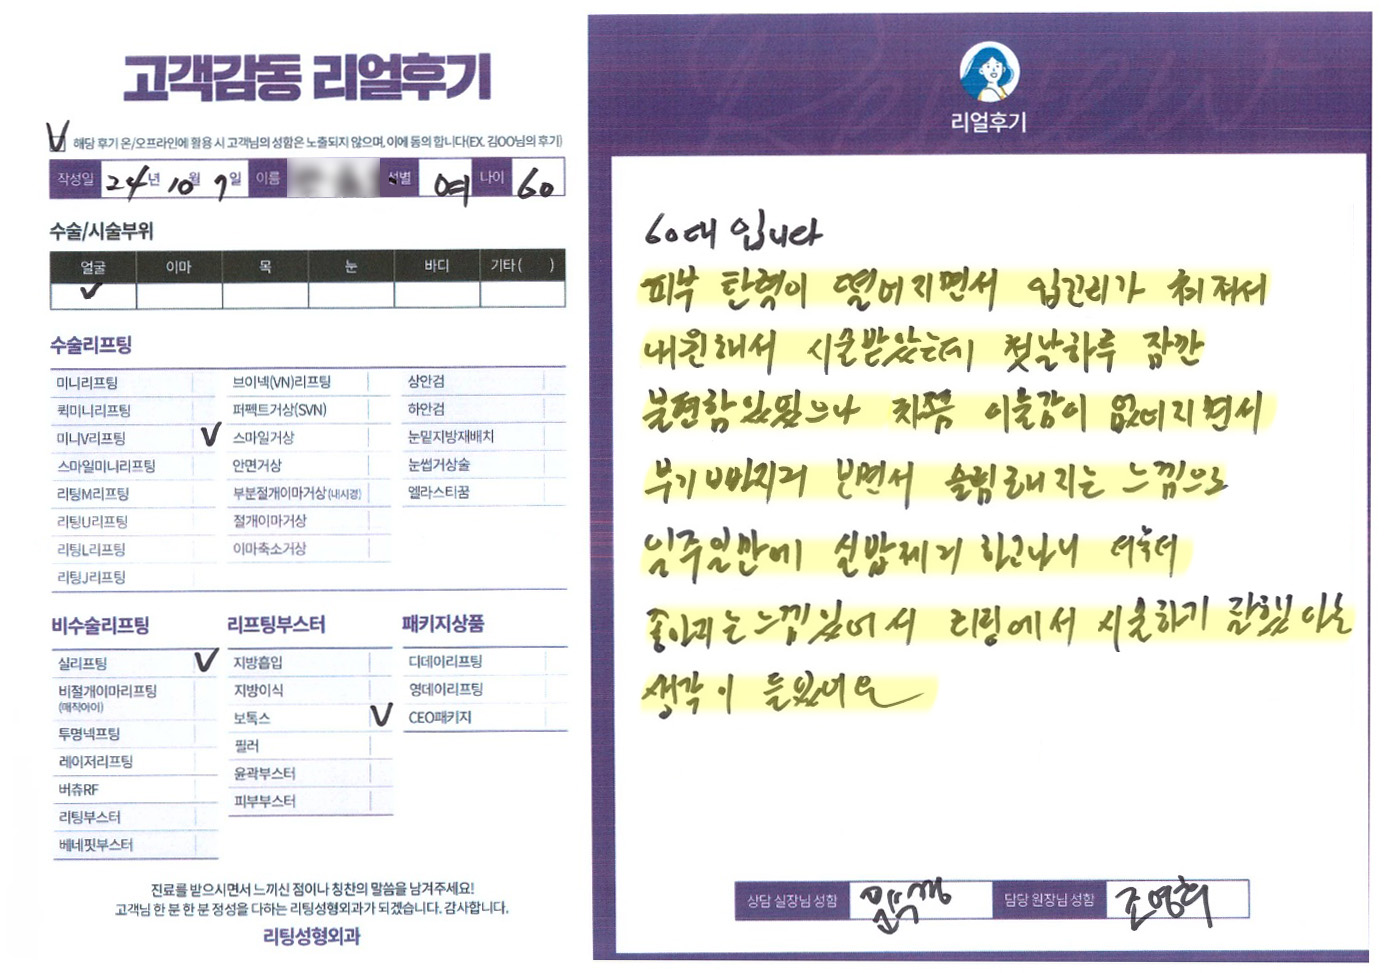 고객감동 리얼후기
V 해당 후기 온/오프라인에 활용 시 고객님의 성함은 노출되지 않으며, 이에 동의 합니다(EX. 김OO님의 후기)
작성일 24년 10월 7일 이름 성별 여 나이 60
수술/시술부위
얼굴 이마 목 눈 바디 기타 ( )
✓
수술리프팅
미니리프팅 브이넥(VN)리프팅 상안검
퀵미니리프팅 퍼펙트거상(SVN) 하안검
미니V리프팅 V 스마일거상 눈밑지방재배치
스마일미니리프팅 안면거상 눈썹거상술
리팅M리프팅 부분절개이마거상 (내시경) 엘라스티꿈
리팅U리프팅 절개이마거상
리팅L리프팅 이마축소거상
리팅J리프팅
비수술리프팅 리프팅부스터 패키지상품
실리프팅 V 지방흡입 디데이리프팅
비절개이마리프팅 지방이식 영데이리프팅
(매직아이)
보톡스 V CEO패키지
투명넥프팅 필러
레이저리프팅 윤곽부스터
버츄RF 피부부스터
리팅부스터
베네핏부스터
진료를 받으시면서 느끼신 점이나 칭찬의 말씀을 남겨주세요!
고객님 한 분 한 분 정성을 다하는 리팅성형외과가 되겠습니다. 감사합니다.
리팅성형외과
Review
리얼후기
60대 입니다
피부 탄력이 떨어지면서 입꼬리가 쳐져서
내원해서 시술받았는데 첫날하루 잠깐
불편함있었으나 차츰 이물감이 없어지면서
부기 빠지고 보면서 슬림해지는 느낌으로
일주일만에 실밥제거 하고나니 더욱더
좋아지는느낌있어서 리팅에서 시술하기 잘했다는
생각이 들었어요
상담 실장님 성함 담당 원장님 성함 조영희